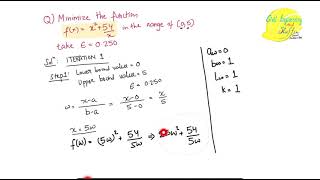 Q) Minimize the function
f(x) = x² + 54/x in the range of (0,5)
take ε = 0.250
Solⁿ: ITERATION 1
Step1: Lower bound value = 0
Upper bound value = 5
ε = 0.250
w = x-a/b-a = x-0/5-0 = x/5
x = 5w
f(w) = (5w)² + 54/5w ⇒ w² + 54/5w
aw=0
bw= 1
Lw= 1
k = 1
Civil Engineering